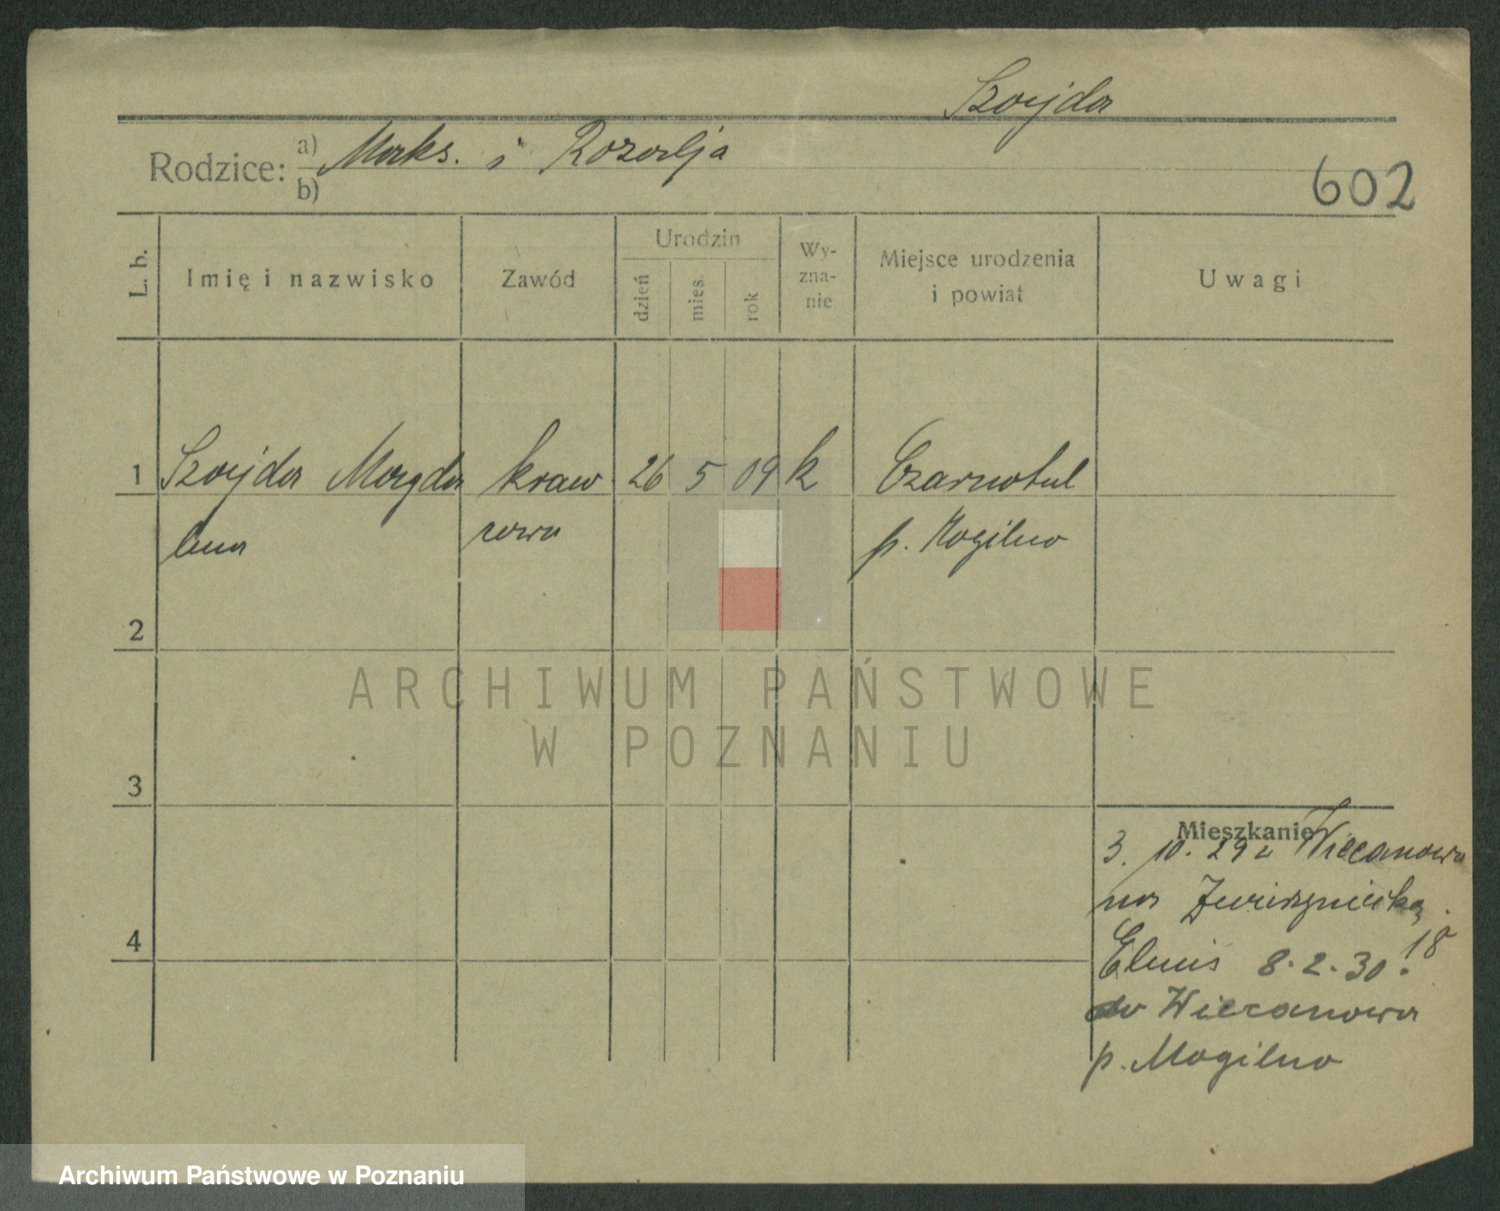 Szojda
Rodzice: a) Maks. i Rozalja
b)
602
L. b. Imię i nazwisko Zawód Urodzin dzień mies. rok Wy-zna-nie Miejsce urodzenia i powiat Uwagi
1 Szojda Magda kraw 26 5 09 k Czarnotul
lena cowa p. Mogilno
2
ARCHIWUM PAŃSTWOWE
W POZNANIU
3
Mieszkanie
3. 10. 29 z Wiecanowa
na
4
18
8.2.30.
do Wiecanowa
p. Mogilno
Archiwum Państwowe w Poznaniu